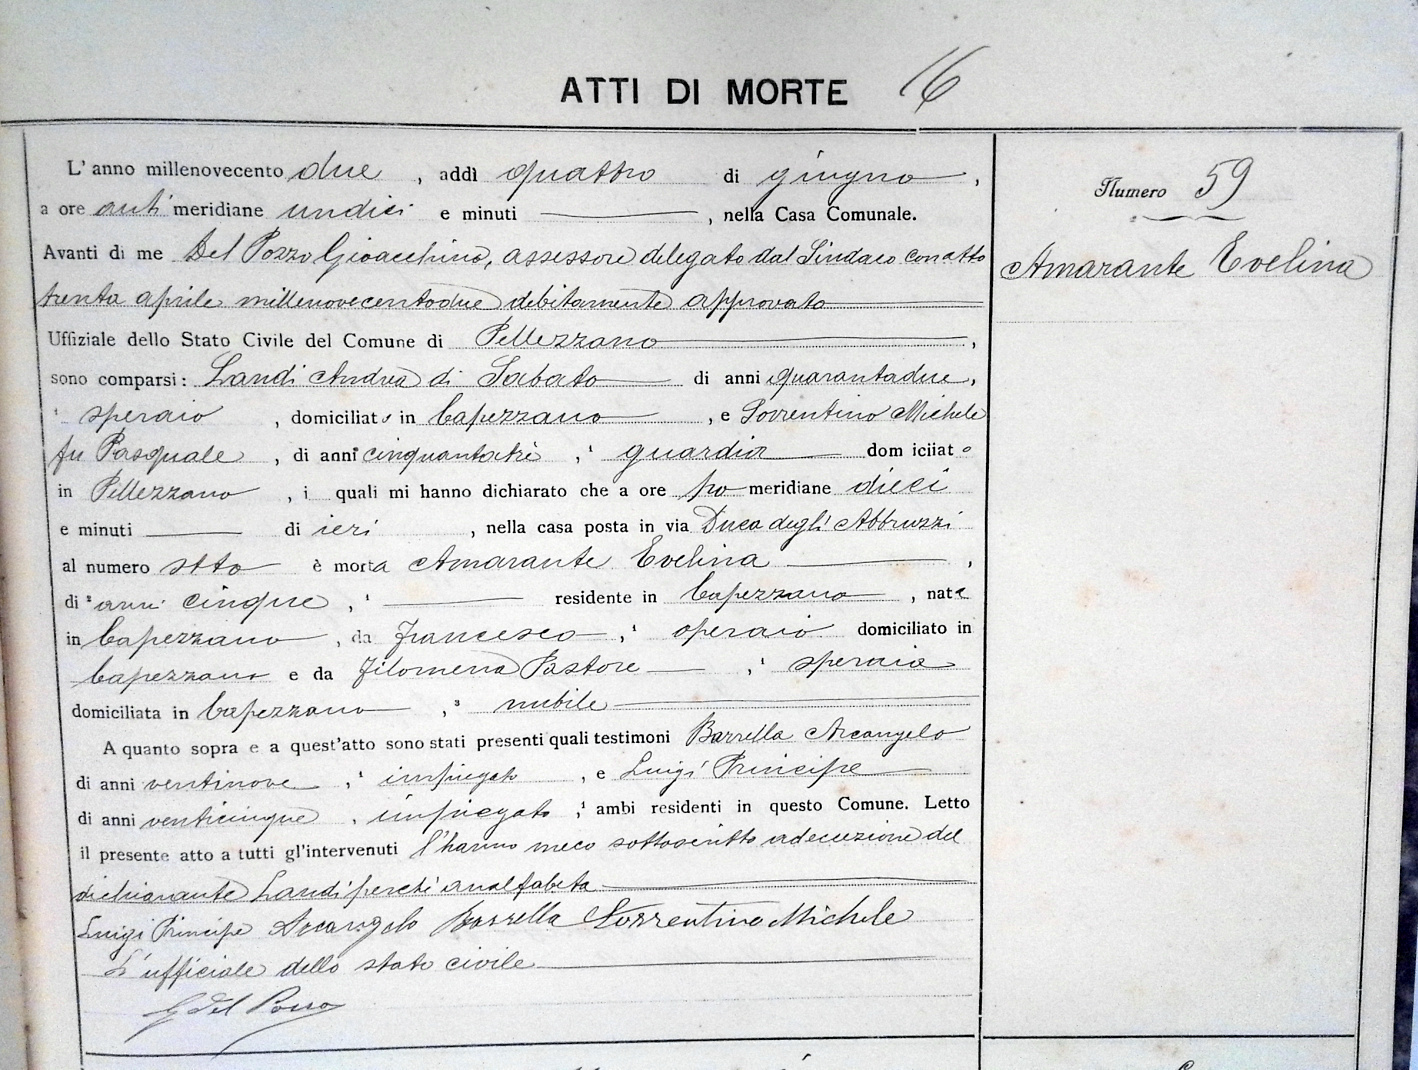 ATTI DI MORTE 16
L'anno millenovecento due, addì quattro di giugno,
a ore anti meridiane undici e minuti , nella Casa Comunale.
Avanti di me Del Pozzo Gioacchino, assessore delegato dal Sindaco con atto
trenta aprile millenovecentodue debitamente approvato
Uffiziale dello Stato Civile del Comune di Pellezzano,
sono comparsi: Landi Andrea di Sabato di anni quarantadue,
operaio, domiciliato in Capezzano, e Sorrentino Michele
fu Pasquale, di anni cinquantatrè, guardia domiciliato
in Pellezzano, i quali mi hanno dichiarato che a ore po meridiane dieci
e minuti di ieri, nella casa posta in via Duca degli Abbruzzi
al numero otto è morta Amarante Evelina,
di anni cinque, residente in Capezzano, nata
in Capezzano, da Francesco, operaio domiciliato in
Capezzano e da Filomena Pastore, operaia
domiciliata in Capezzano, nubile
A quanto sopra e a quest'atto sono stati presenti quali testimoni Barrella Arcangelo
di anni ventinove, impiegato, e Luigi Principe
di anni venticinque, impiegato, ambi residenti in questo Comune. Letto
il presente atto a tutti gl'intervenuti l'hanno meco sottoscritto ad eccezione del
dichiarante Landi perchè analfabeta
Luigi Principe Arcangelo Barrella Sorrentino Michele
L'ufficiale dello stato civile
G Del Pozzo
Numero 59
Amarante Evelina